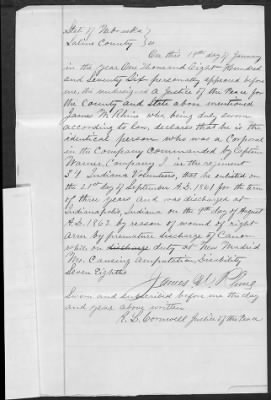 State of Nebraska }
Saline County } SS.
On this 19th day of January
in the year One Thousand Eight Hundred
and Seventy Six personally appeared before
me the undersigned a Justice of the Peace for
the County and State above mentioned
James M. Rhine who being duly sworn
according to law declares that he is the
identical person who was a Corporal
in the Company commanded by Captain
Warner Company I in the regiment
34 Indiana Volunteers, that he enlisted on
the 21st day of September A.D. 1861 for the term
of three years and was discharged at
Indianapolis, Indiana on the 9th day of August
A.D. 1862 by reason of wound of right
arm by premature discharge of Cannon
while on discharge duty at New Madrid
Mo. Causing amputation, Disability
Seven Eighths
James M. Rhine
Sworn and subscribed before me this day
and year above written
Cornwell Justice of the Peace